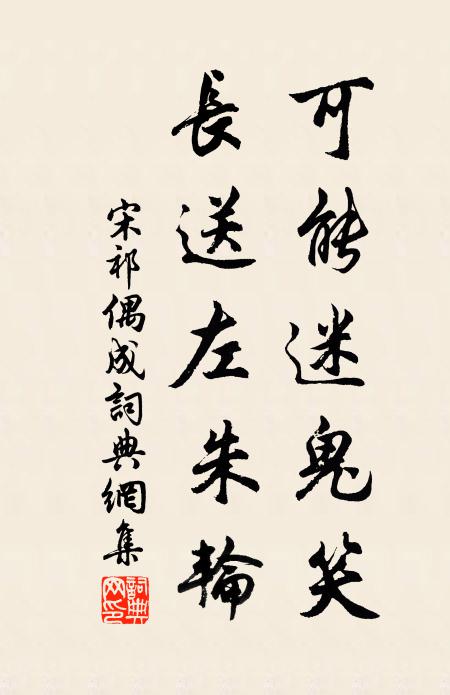 可能迷鬼笑
長送左朱輪
宋祁偶成詞典網集
詞典网印